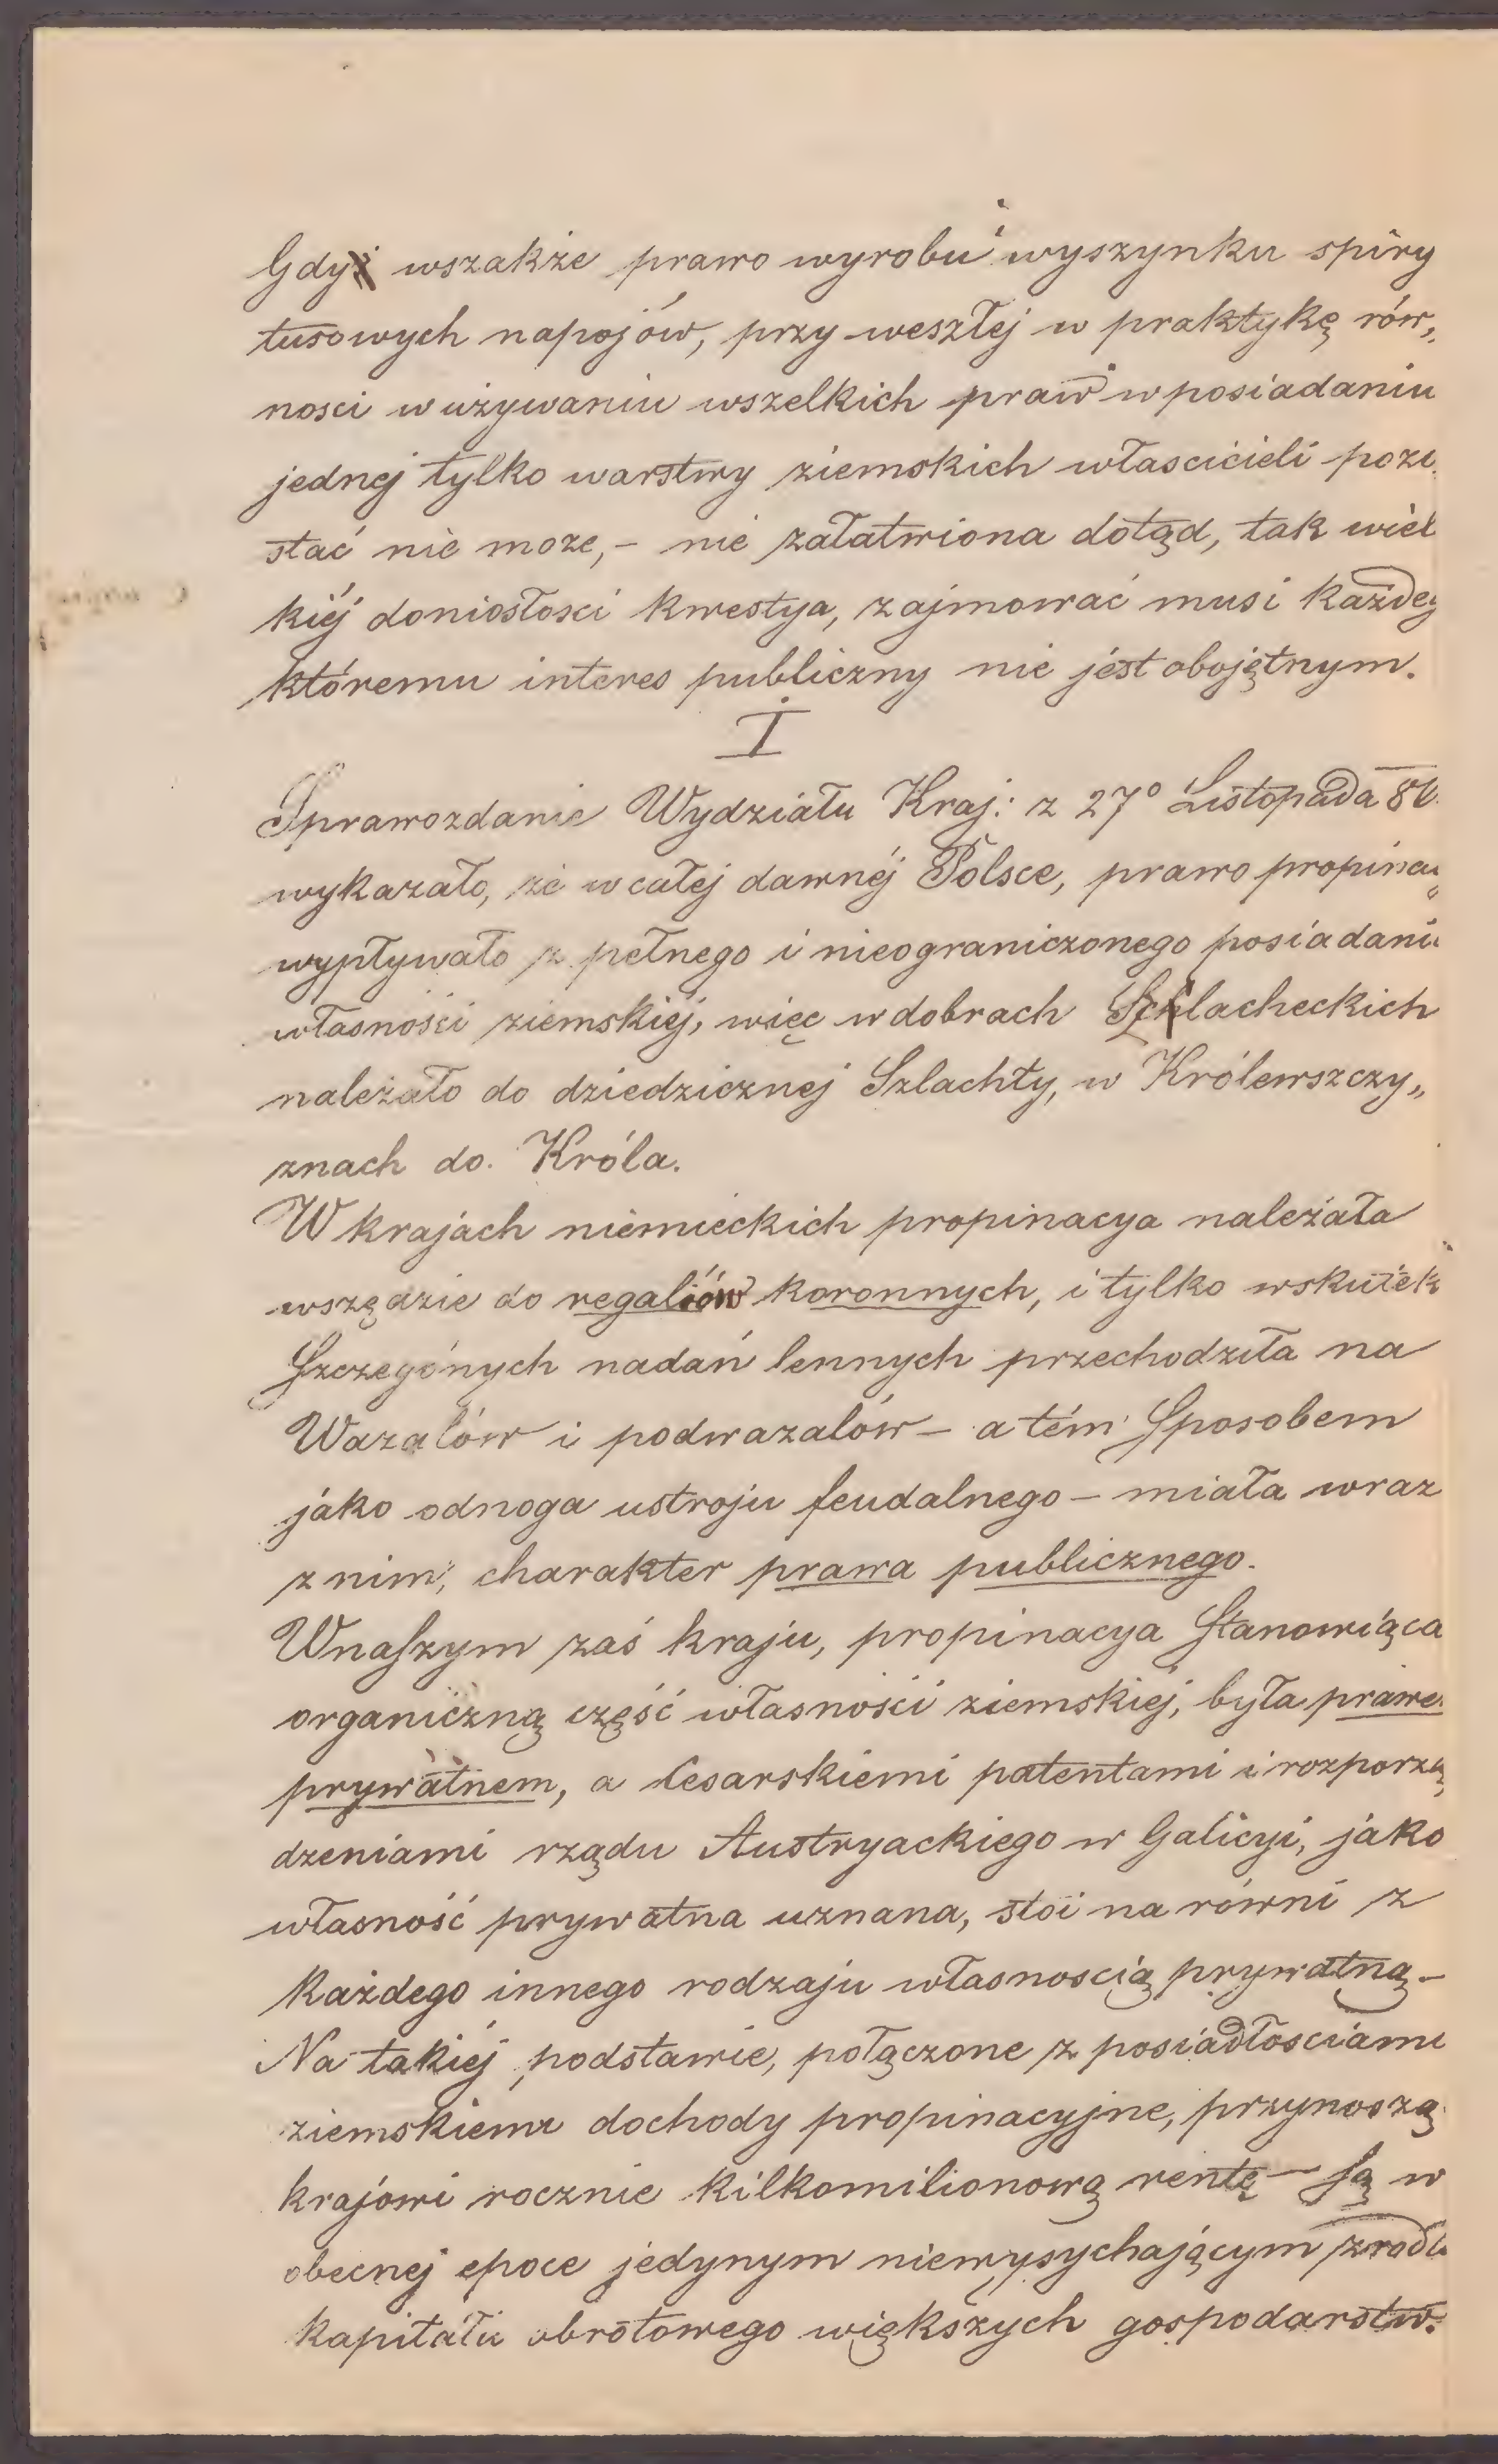 Gdy wszakże prawo wyrobu i wyszynku spiry
tusowych napojów, przy weszłej w praktykę rów„
nosci w używaniu wszelkich praw w posiadaniu
jednej tylko warstwy ziemskich włascicieli pozo
stać nie może, – nie załatwiona dotąd, tak wiel
kiéj doniosłosci kwestya, zajmować musi każdeg
któremu interes publiczny nie jest obojętnym.
I
Sprawozdanie Wydziału Kraj: z 27º Listopada
wykazało, że w całej dawnéj Polsce, prawo propinac
wypływało z pełnego i nieograniczonego posiadani
własności ziemskiéj, więc w dobrach Szlacheckich
należało do dziedzicznej Szlachty, w Królewszczy„
znach do Króla.
W krajach niemieckich propinacya należała
wszędzie do regaliów koronnych, i tylko wskutek
Szczegónych nadań lennych przechodziła na
Wazalów i podwazalów – a tém Sposobem
jako odnoga ustroju feudalnego – miała wraz
z nim, charakter prawa publicznego.
W naszym zaś kraju, propinacya Stanowiąca
organiczną część własności ziemskiéj, była prawe
prywatnem, a Cesarskiemi patentami i rozporzą
dzeniami rządu Austryackiego w Galicyi, jako
własność prywatna uznana, stoi na równi z
każdego innego rodzaju własnoscią prywatną –
Na takiéj podstawie, połączone z posiadłosciami
ziemskiemi dochody propinacyjne, przynoszą
krajowi rocznie kilkomilionową rentę – są w
obecnej epoce jedynym niewysychającym zrodł
kapitału obrotowego większych gospodarstw.